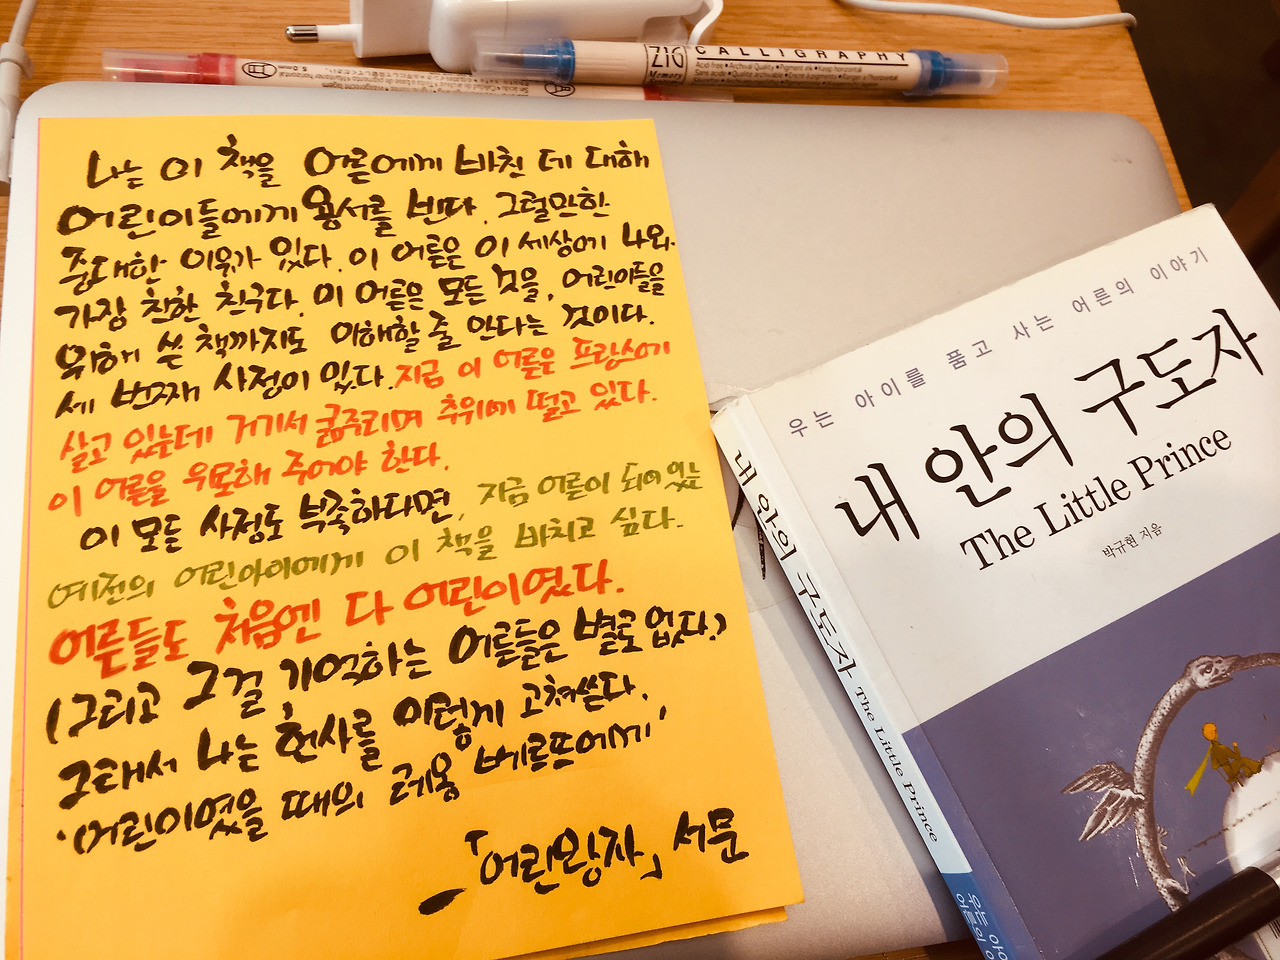 ZIG
Memory
CALLIGRAPHY
나는 이 책을 어른에게 바친 데 대해
어린이들에게 용서를 빈다. 그럴만한
중대한 이유가 있다. 이 어른은 이 세상에 나와,
가장 친한 친구다. 이 어른은 모든 것을, 어린이들을
위해 쓴 책까지도 이해할 줄 안다는 것이다.
세 번째 사정이 있다. 지금 이 어른은 프랑스에
살고 있는데 거기서 굶주리며 추위에 떨고 있다.
이 어른을 위로해 주어야 한다.
이 모든 사정도 부족하다면, 지금 어른이 되어있는
예전의 어린아이에게 이 책을 바치고 싶다.
어른들도 처음엔 다 어린이였다.
(그리고 그걸 기억하는 어른들은 별로 없다.)
그래서 나는 헌사를 이렇게 고쳐쓴다.
'어린이였을 때의 레옹 베르뜨에게'
_「어린왕자」 서문
우는 아이를 품고 사는 어른의 이야기
내 안의 구도자
The Little Prince
박규현 지음
내 안의 구도자 The Little Prince